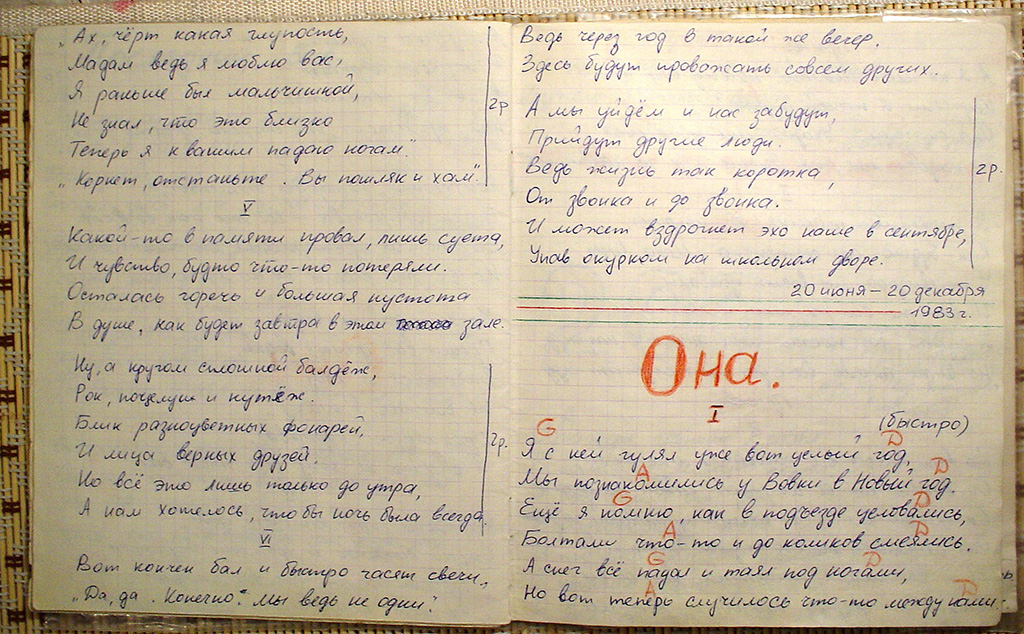 „Ах, чёрт какая глупость,
Мадам ведь я люблю вас,
Я раньше был мальчишкой,
Не знал, что это близко
Теперь я к вашим падаю ногам".
„Корнет, отстаньте. Вы пошляк и хам."
2р
V
Какой-то в памяти провал, лишь суета,
И чувство, будто что-то потеряли.
Осталась горечь и большая пустота
В душе, как будет завтра в этом зале.
Ну, а кругом сплошной балдёж,
Рок, поцелуи и кутёж.
Блик разноцветных фонарей,
И лица верных друзей.
Но всё это лишь только до утра,
А нам хотелось, чтобы ночь была всегда.
2р.
VI
Вот кончен бал и быстро гасят свечи.
„Да, да. Конечно". Мы ведь не одни?
Ведь через год в такой же вечер.
Здесь будут провожать совсем других.
А мы уйдём и нас забудут,
Прийдут другие люди.
Ведь жизнь так коротка,
От звонка и до звонка.
И может вздрогнет эхо наше в сентябре,
Упав окурком на школьном дворе.
2р.
20 июня – 20 декабря
1983 г.
Она.
I
(быстро)
G D
Я с ней гулял уже вот целый год,
A D
Мы познакомились у Вовки в Новый год.
G D
Ещё я помню, как в подъезде целовались,
A D
Болтали что-то и до коликов смеялись.
G D
А снег всё падал и таял под ногами,
A D
Но вот теперь случилось что-то между нами.